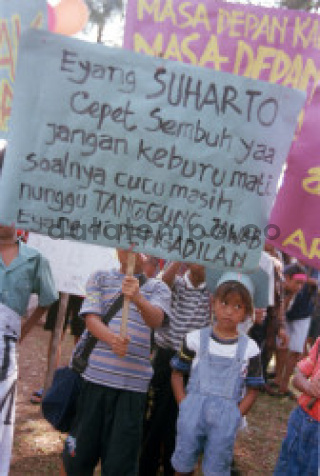 MASA DEPAN
MASA DEPAN
Eyang SUHARTO
Cepet Sembuh yaa
jangan keburu mati
soalnya cucu masih
nunggu TANGGUNG JAWAB
Eyang di PENGADILAN